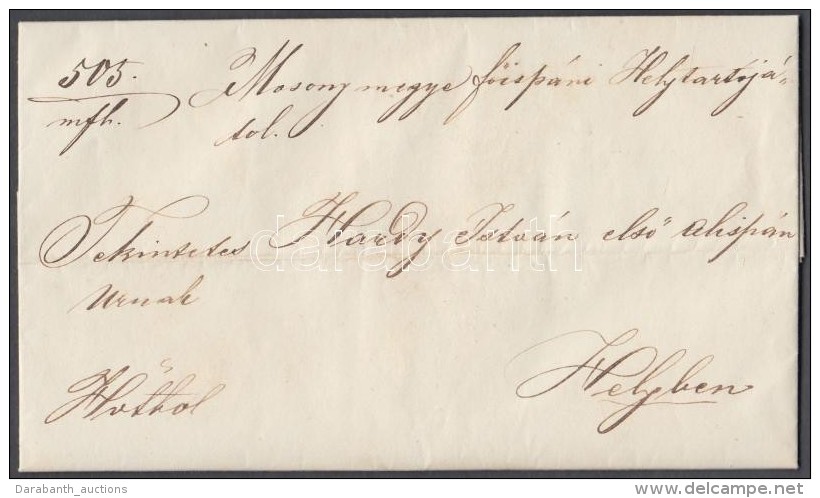 505. Mosony megye főispáni Helytartójá-
mfh. tol.
Tekintetes Hardy István első alispán
Urnak
Helyben
darabanth
Darabanth_auctions
www.delcampe.net